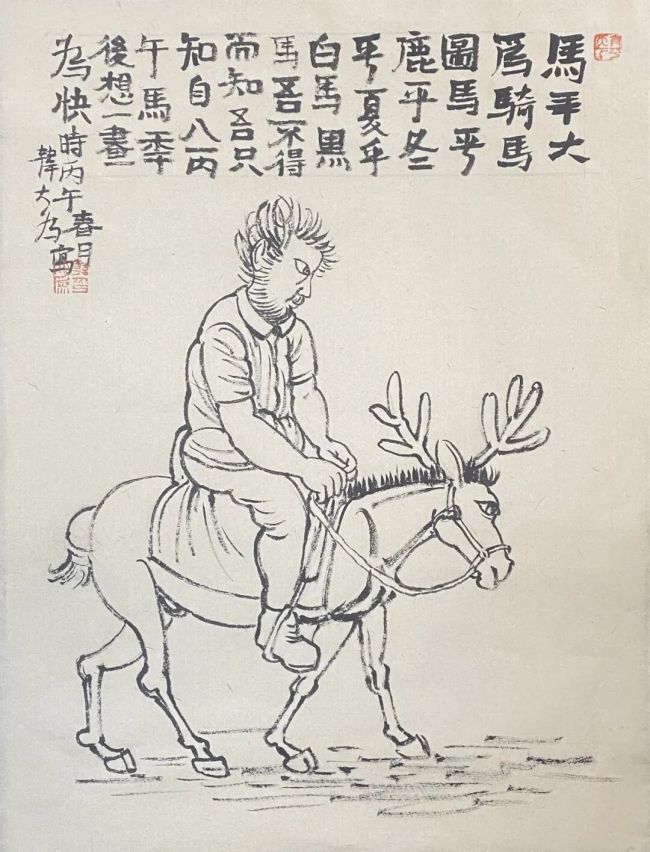 馬年大
爲騎馬
圖馬乎
鹿乎冬
乎夏乎
白馬黑
馬吾不得
而知吾只
知自入丙
午馬季
後想一畫
為快時丙午春月
韓大为寫